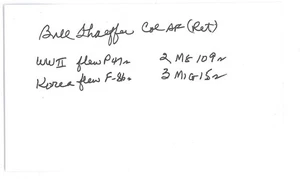 Bill Shaeffer Col AF (Ret)
WW II flew P47s 2 ME 109s
Korea flew F-86s 3 MIG 15s